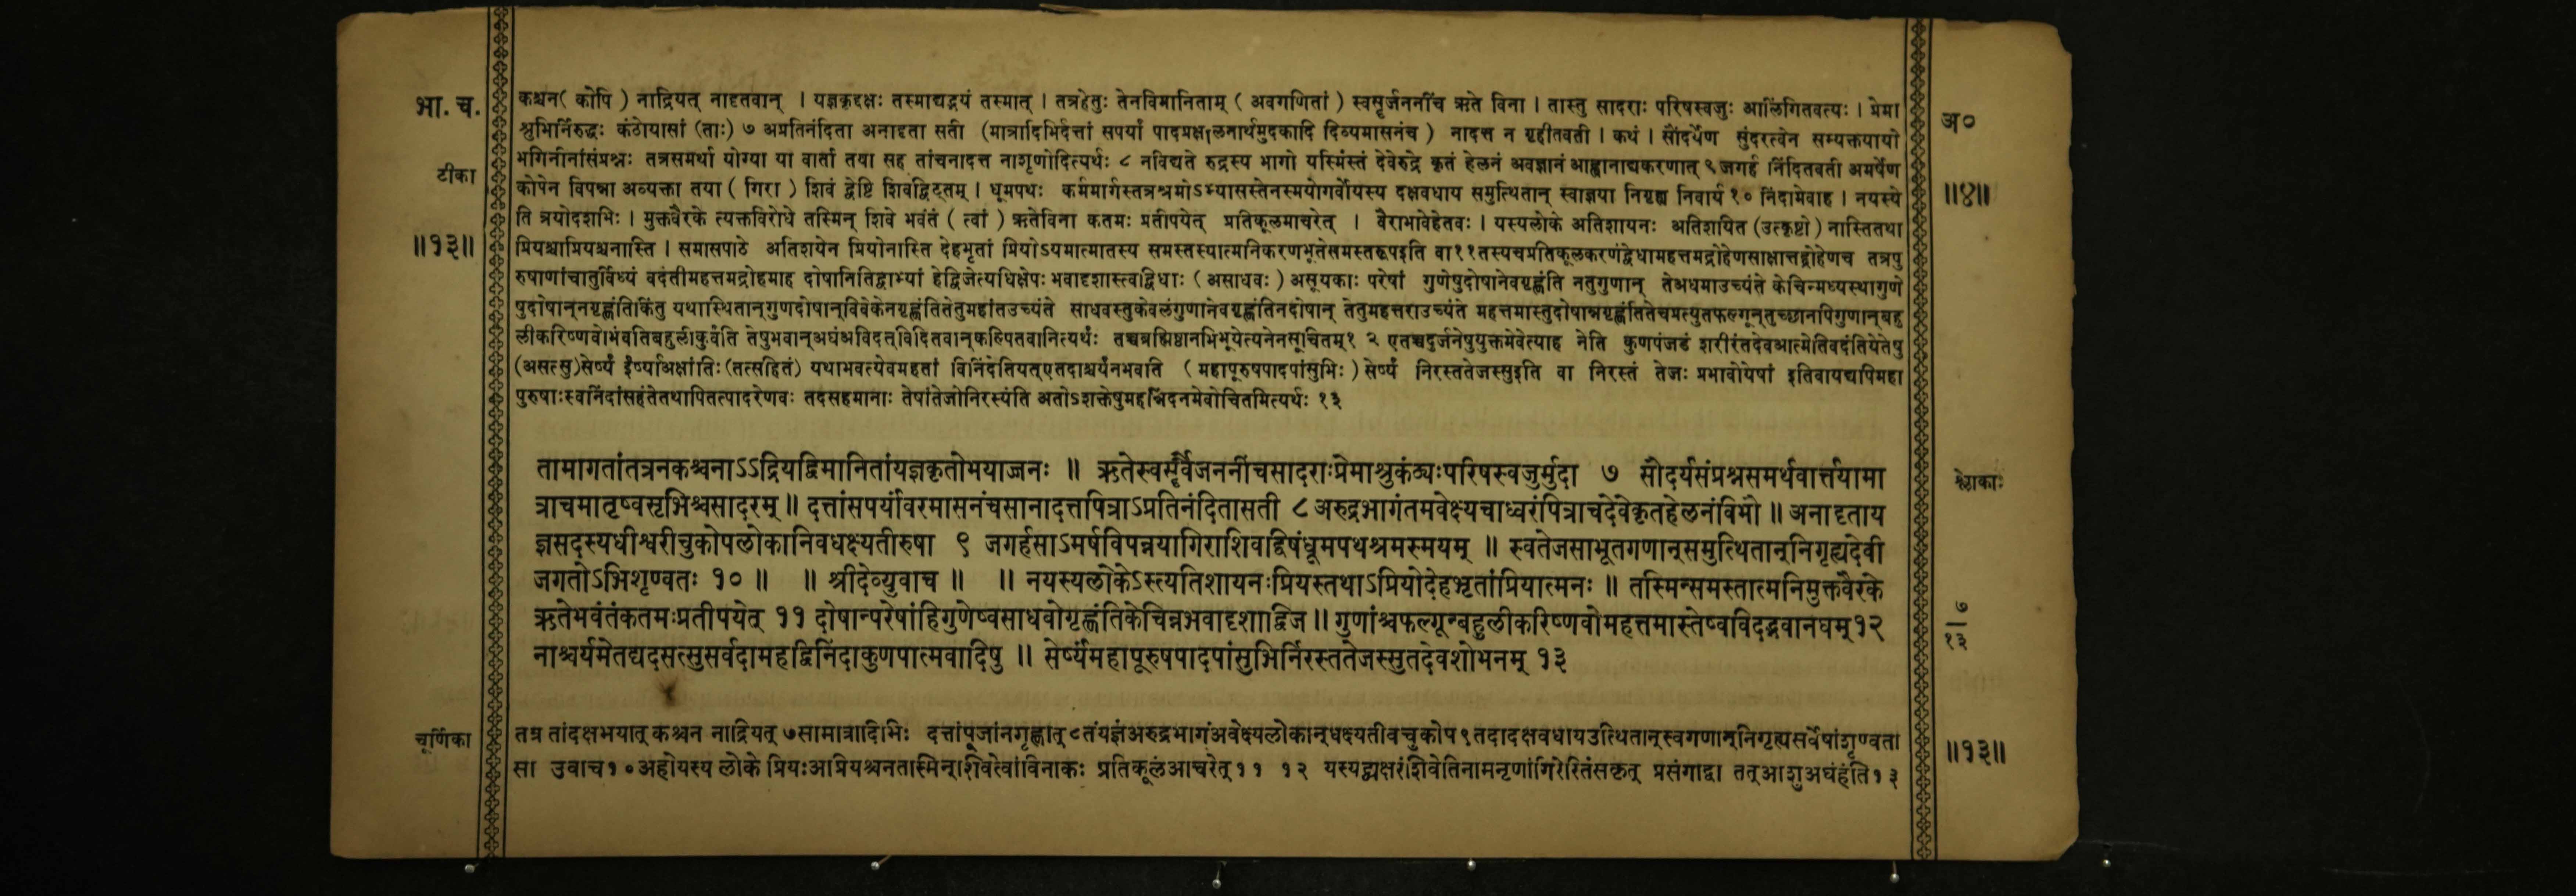 भा. च.
टीका
॥१३॥
अ०
॥४॥
कश्चन( कोपि ) नाद्रियत् नादृतवान् । यज्ञकृद्दक्षः तस्माद्यद्भयं तस्मात् । तत्रहेतुः तेनविमानिताम् ( अवगणितां ) स्वसॄर्जननींच ऋते विना । तास्तु सादराः परिषस्वजुः आलिंगितवत्यः । प्रेमा
श्रुभिर्निरुद्धः कंठोयासां (ताः) ७ अप्रतिनंदिता अनादृता सती (मात्रादिभिर्दत्तां सपर्यां पादप्रक्षालनार्थमुदकादि दिव्यमासनंच ) नादत्त न गृहीतवती । कथं । सौंदर्येण सुंदरत्वेन सम्यक्तयायो
भगिनीनांसंप्रश्नः तत्रसमर्था योग्या या वार्ता तया सह तांचनादत्त नाशृणोदित्यर्थः ८ नविद्यते रुद्रस्य भागो यस्मिंस्तं देवेरुद्रे कृतं हेलनं अवज्ञानं आह्वानाद्यकरणात् ९ जगर्ह निंदितवती अमर्षेण
कोपेन विपन्ना अव्यक्ता तया ( गिरा ) शिवं द्वेष्टि शिवद्विट्तम् । धूमपथः कर्ममार्गस्तत्रश्रमोऽभ्यासस्तेनस्मयोगर्वोयस्य दक्षवधाय समुत्थितान् स्वाज्ञया निगृह्य निवार्य १० निंदामेवाह । नयस्ये
ति त्रयोदशभिः । मुक्तवैरके त्यक्तविरोधे तस्मिन् शिवे भवंतं ( त्वां ) ऋतेविना कतमः प्रतीपयेत् प्रतिकूलमाचरेत् । वैराभावेहेतवः । यस्यलोके अतिशायनः अतिशयित (उत्कृष्टो ) नास्तितथा
प्रियश्चाप्रियश्चनास्ति । समासपाठे अतिशयेन प्रियोनास्ति देहभृतां प्रियोऽयमात्मातस्य समस्तस्यात्मनिकरणभूतेसमस्तरूपइति वा११तस्यचप्रतिकूलकरणंद्वेधामहत्तमद्रोहेणसाक्षात्तद्रोहेणच तत्रपु
रुषाणांचातुर्विध्यं वदंतीमहत्तमद्रोहमाह दोषानितिद्वाभ्यां हेद्विजेत्यधिक्षेपः भवादृशास्त्वद्विधाः ( असाधवः ) असूयकाः परेषां गुणेषुदोषानेवगृह्णंति नतुगुणान् तेअधमाउच्यंते केचिन्मध्यस्थागुणे
षुदोषान्नगृह्णंतिकिंतु यथास्थितान्गुणदोषान्विवेकेनगृह्णंतितेतुमहांतउच्यंते साधवस्तुकेवलंगुणानेवगृह्णंतिनदोषान् तेतुमहत्तराउच्यंते महत्तमास्तुदोषान्नगृह्णंतितेचप्रत्युतफल्गून्तुच्छानपिगुणान्बहु
लीकरिष्णवोभवंतिबहुलीकुर्वंति तेषुभवान्अघंअविदत्विदितवान्कल्पितवानित्यर्थः तच्चब्रह्मिष्ठानभिभूयेत्यनेनसूचितम्१ २ एतच्चदुर्जनेषुयुक्तमेवेत्याह नेति कुणपंजडं शरीरंतदेवआत्मेतिवदंतियेतेषु
(असत्सु)सेर्ष्यं ईर्ष्याअक्षांतिः(तत्सहितं) यथाभवत्येवमहतां विनिंदेतियत्एतदाश्चर्यंनभवति ( महापूरुषपादपांसुभिः ) सेर्ष्यं निरस्ततेजस्सुइति वा निरस्तं तेजः प्रभावोयेषां इतिवायद्यपिमहा
पुरुषाःस्वनिंदांसहंतेतथापितत्पादरेणवः तदसहमानाः तेषांतेजोनिरस्यंति अतोऽशक्तेषुमहन्निंदनमेवोचितमित्यर्थः १३
तामागतांतत्रनकश्चनाऽऽद्रियद्विमानितांयज्ञकृतोभयाज्जनः ॥ ऋतेस्वसॄर्वैजननींचसादराःप्रेमाश्रुकंठ्यःपरिषस्वजुर्मुदा ७ सौदर्यसंप्रश्नसमर्थवार्त्तयामा
त्राचमातृष्वसृभिश्चसादरम् ॥ दत्तांसपर्यांवरमासनंचसानादत्तपित्राऽप्रतिनंदितासती ८ अरुद्रभागंतमवेक्ष्यचाध्वरंपित्राचदेवेकृतहेलनंविभौ ॥ अनादृताय
ज्ञसदस्यधीश्वरीचुकोपलोकानिवधक्ष्यतीरुषा ९ जगर्हसाऽमर्षविपन्नयागिराशिवद्विषंधूमपथश्रमस्मयम् ॥ स्वतेजसाभूतगणान्समुत्थितान्निगृह्यदेवी
जगतोऽभिशृण्वतः १० ॥ ॥ श्रीदेव्युवाच ॥ ॥ नयस्यलोकेऽस्त्यतिशायनःप्रियस्तथाऽप्रियोदेहभृतांप्रियात्मनः ॥ तस्मिन्समस्तात्मनिमुक्तवैरके
ऋतेभवंतंकतमःप्रतीपयेत् ११ दोषान्परेषांहिगुणेष्वसाधवोगृह्णंतिकेचिन्नभवादृशाद्विज ॥ गुणांश्चफल्गून्बहुलीकरिष्णवोमहत्तमास्तेष्वविदद्भवानघम्१२
नाश्चर्यमेतद्यदसत्सुसर्वदामहद्विनिंदाकुणपात्मवादिषु ॥ सेर्ष्यंमहापूरुषपादपांसुभिर्निरस्ततेजस्सुतदेवशोभनम् १३
श्लोकाः
७
१३
चूर्णिका
तत्र तांदक्षभयात् कश्चन नाद्रियत् ७सामात्रादिभिः दत्तांपूजांनगृह्णात् ८तंयज्ञंअरुद्रभागंअवेक्ष्यलोकान्धक्ष्यतीवचुकोप९तदादक्षवधायउत्थितान्स्वगणान्निगृह्यसर्वेषांशृण्वता
सा उवाच१०अहोयस्य लोके प्रियःअप्रियश्चनतास्मिन्शिवेत्वांविनाकः प्रतिकूलंआचरेत्११ १२ यस्यद्व्यक्षरंशिवेतिनामनृणांगिरेरितंसकृत् प्रसंगाद्वा तत्आशुअघंहंति१३
॥१३॥